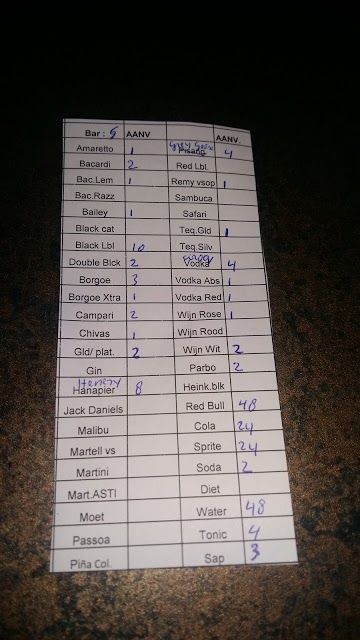 Bar : 5 AANV AANV.
Amaretto 1 Grey Goose Pisang 4
Bacardi 2 Red Lbl
Bac.Lem 1 Remy vsop 1
Bac.Razz Sambuca
Bailey 1 Safari
Black cat Teq.Gld 1
Black Lbl 10 Teq.Silv
Double Blck 2 Vodka 4
Borgoe 3 Vodka Abs 1
Borgoe Xtra 1 Vodka Red 1
Campari 2 Wijn Rose 1
Chivas 1 Wijn Rood
Gld/ plat. 2 Wijn Wit 2
Gin Parbo 2
Hanapier 8 Heink.blk
Jack Daniels Red Bull 48
Malibu Cola 24
Martell vs Sprite 24
Martini Soda 2
Mart.ASTI Diet
Moet Water 48
Passoa Tonic 4
Piña Col. Sap 3